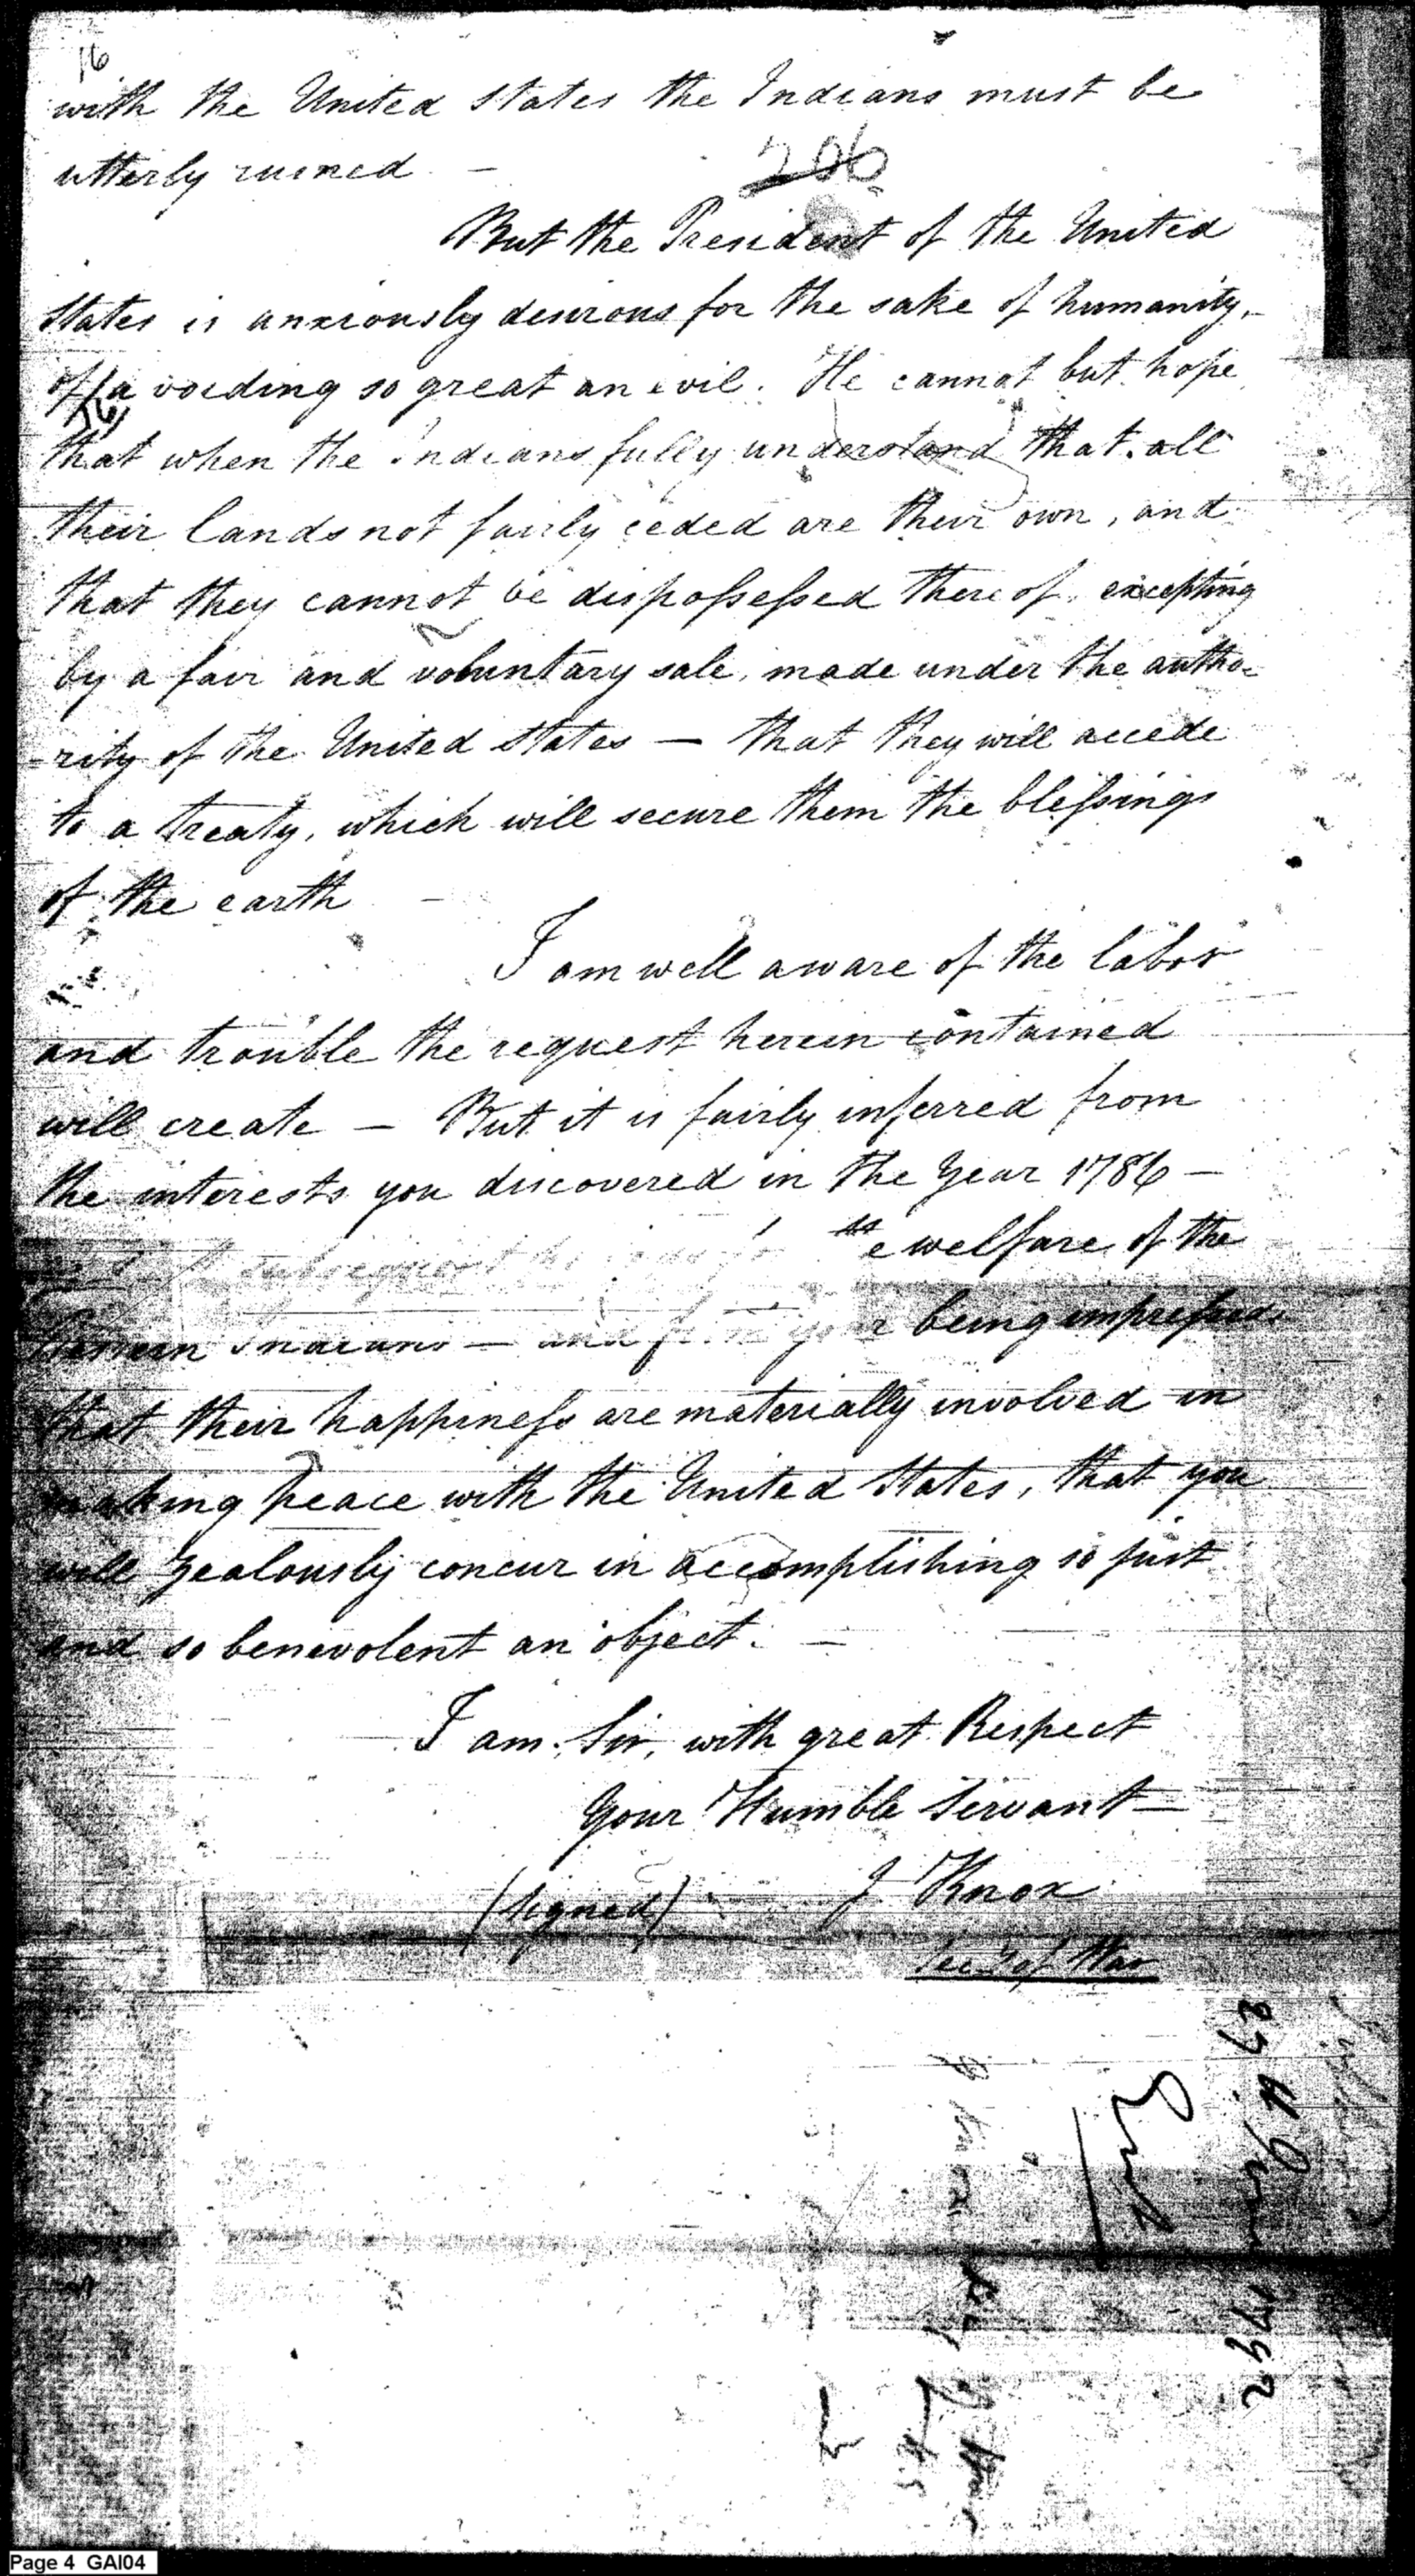 16
with the United States the Indians must be
utterly ruined —
206
But the President of the United
States is anxiously desirous for the sake of humanity,
of avoiding so great an evil. He cannot but hope
that when the Indians fully understand that all
their lands not fairly ceded are their own, and
that they cannot be dispossessed thereof, excepting
by a fair and voluntary sale, made under the autho-
-rity of the United States — that they will accede
to a treaty, which will secure them the blessings
of the earth —
I am well aware of the labor
and trouble the request herein contained
will create — But it is fairly inferred from
the interests you discovered in the Year 1786 —
subsequent the welfare of the
Indians — and from your being impressed
that their happiness are materially involved in
making peace with the United States, that you
will zealously concur in accomplishing so just
and so benevolent an object. —
I am Sir, with great Respect
Your Humble Servant —
(signed) J Knox
Secy of War
27
1792
Page 4 GAI04